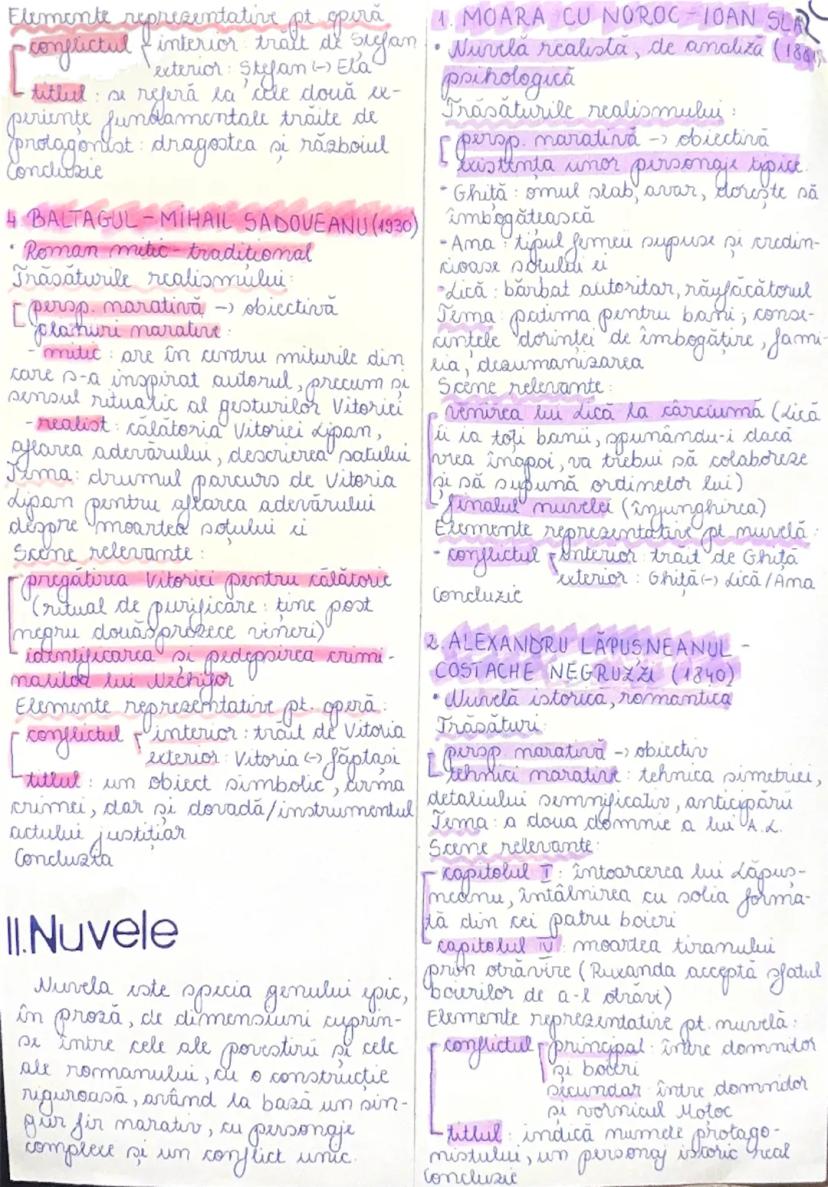 Elemente reprezentative pt. operă
conflictul interior: trăit de Ștefan
exterior: Ștefan ↔ Ela
titlul: se referă la cele două ex-
periențe fundamentale trăite de
protagonist: dragostea și războiul
Concluzie
4. BALTAGUL - MIHAIL SADOVEANU (1930)
• Roman mitic - tradițional
Trăsăturile realismului:
persp. narativă -> obiectivă
planuri narative:
- mitic: are în centru miturile din
care s-a inspirat autorul, precum și
sensul ritualic al gesturilor Vitoriei
- realist: călătoria Vitoriei Lipan,
aflarea adevărului, descrierea satului
Tema: drumul parcurs de Vitoria
Lipan pentru aflarea adevărului
despre moartea soțului ei
Scene relevante:
pregătirea Vitoriei pentru călătorie
(ritual de purificare: ține post
negru douăsprezece vineri)
identificarea și pedepsirea crimi-
nalilor lui Nechifor
Elemente reprezentative pt. operă:
conflictul interior: trăit de Vitoria
exterior: Vitoria ↔ făptași
titlul: un obiect simbolic, arma
crimei, dar și dovadă/instrumentul
actului justițiar
Concluzia
II. Nuvele
Nuvela este specia genului epic,
în proză, de dimensiuni cuprin-
se între cele ale povestirii și cele
ale romanului, cu o construcție
riguroasă, având la bază un sin-
gur fir narativ, cu personaje
complexe și un conflict unic.
1. MOARA CU NOROC - IOAN
• Nuvelă realistă, de analiză
psihologică
Trăsăturile realismului:
persp. narativă -> obiectivă
existența unor personaje tipice
• Ghiță: omul slab, avar, dorește să
îmbogătească
• Ana: tipul femeii supuse și credin-
cioase soțului ei
• Lică: bărbat autoritar, răufăcătorul
Tema: patima pentru bani; conse-
cințele dorinței de îmbogățire, fami-
lia, dezumanizarea
Scene relevante:
venirea lui Lică la cârciumă (Lică
îi ia toți banii, spunându-i dacă
vrea înapoi, va trebui să colaboreze
și să supună ordinelor lui)
finalul nuvelei (înjunghirea)
Elemente reprezentative pt nuvelă:
- conflictul interior: trăit de Ghiță
exterior: Ghiță ↔ Lică/Ana
Concluzie
2. ALEXANDRU LĂPUSNEANUL -
COSTACHE NEGRUZZI (1840)
• Nuvelă istorică, romantică
Trăsături:
persp. narativă -> obiectiv
tehnici narative: tehnica simetriei,
detaliului semnificativ, anticipării
Tema: a doua domnie a lui A.L.
Scene relevante:
capitolul I: întoarcerea lui Lăpuș-
neanu, întâlnirea cu solia forma-
tă din cei patru boieri
capitolul IV: moartea tiranului
prin otrăvire (Ruxanda acceptă sfatul
boierilor de a-l otrăvi)
Elemente reprezentative pt. nuvelă:
conflictul principal: între domnitor
și boieri
secundar: între domnitor
și vornicul Moțoc
titlul: indică numele protago-
nistului, un personaj istoric real
Concluzie